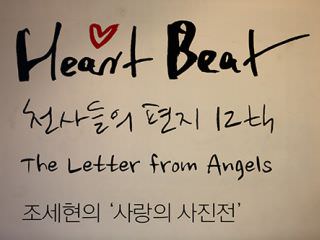 Heart Beat
천사들의 편지 12th
The Letter from Angels
조세현의 '사랑의 사진전'